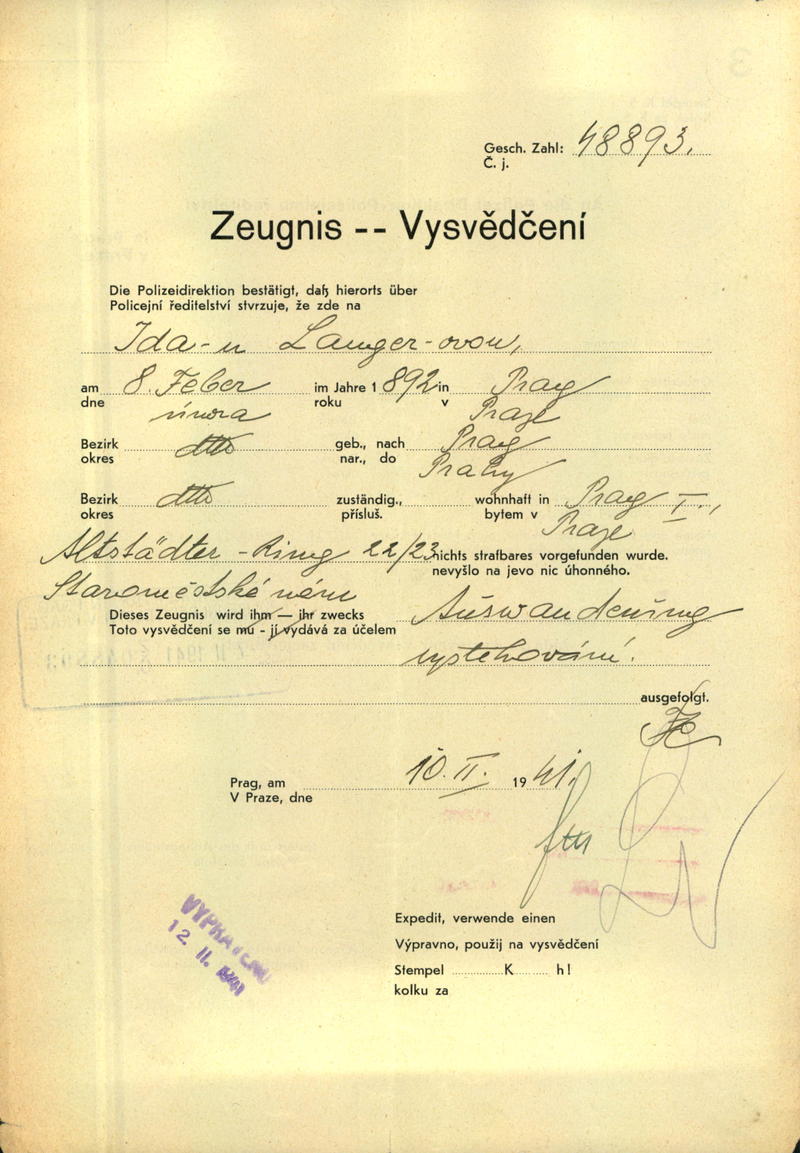 Gesch. Zahl: 48893.
Č. j.
Zeugnis -- Vysvědčení
Die Polizeidirektion bestätigt, daß hierorts über
Policejní ředitelství stvrzuje, že zde na
Ida-u Langer-ovou,
am 8. Feber im Jahre 1 892 in Prag
dne února roku v Praze
Bezirk dtto geb., nach Prag
okres nar., do Prahy
Bezirk dtto zuständig., wohnhaft in Prag I.,
okres přísluš. bytem v Praze
Altstädter-Ring 22/23 nichts strafbares vorgefunden wurde.
nevyšlo na jevo nic úhonného.
Staroměstské nám
Dieses Zeugnis wird ihm — ihr zwecks Auswanderung
Toto vysvědčení se mu - jí vydává za účelem
vystěhování.
ausgefolgt.
Prag, am 10. II. 1941.
V Praze, dne
VYPRAVENO
12. II. 1941
Expedit, verwende einen
Výpravno, použij na vysvědčení
Stempel K h!
kolku za